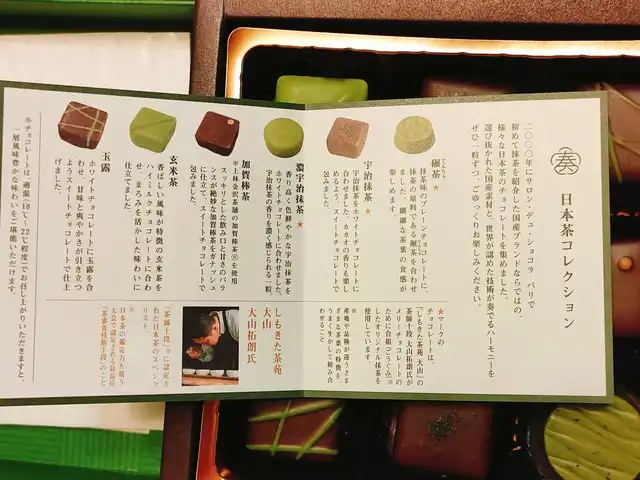 奏
日本茶コレクション
二〇〇〇年にサロン・デュ・ショコラ パリで
初めて抹茶を紹介した国産ブランドならではの、
様々な日本茶のチョコレートを集めました。
選び抜かれた国産素材と、世界が認めた技術が奏でるハーモニーを
ぜひ一粒ずつ、ごゆっくりお楽しみください。
碾茶★
てんちゃ
抹茶味のプレーンチョコレートに、
抹茶の原料である碾茶を合わせ
ました。繊細な茶葉の食感が
楽しめます。
宇治抹茶★
宇治抹茶をホワイトチョコレートに
合わせました。カカオの香りも楽し
めるよう、スイートチョコレートで
包みました。
濃宇治抹茶★
香り高く色鮮やかな宇治抹茶を
ホワイトチョコレートに合わせました。
宇治抹茶の香りを濃く感じられる一粒。
加賀棒茶
※上林金沢茶舗の加賀棒茶®を使用
スッキリとした飲み口と甘さのバラ
ンスが絶妙な加賀棒茶をガナッシュ
に仕立て、スイートチョコレートで
包みました。
玄米茶
香ばしい風味が特徴の玄米茶を
ハイミルクチョコレートに合わ
せ、まろみを活かした味わいに
仕立てました。
玉露
ホワイトチョコレートに玉露を合
わせ、甘味と爽やかさが引き立つ
ようスイートチョコレートで仕上
げました。
※チョコレートは、適温(18℃~22℃程度)でお召し上がりいただきますと、
一層風味豊かな味わいをご堪能いただけます。
★マークの
チョコレートは、
「しもきた茶苑大山」の
茶師十段 大山拓朗氏が
メリーチョコレートの
ために合組(ごうぐみ)※
したオリジナル抹茶を
使用しています。
※
産地や品種が違うさま
ざまな茶葉の特徴を、
うまく生かして組み合
わせること
しもきた茶苑
大山
大山拓朗氏
「茶師十段」※に認定さ
れた日本茶のスペシャ
リスト。
※
日本茶の鑑定力を競う
大会で認定される最高位
「茶審査技術十段」のこと